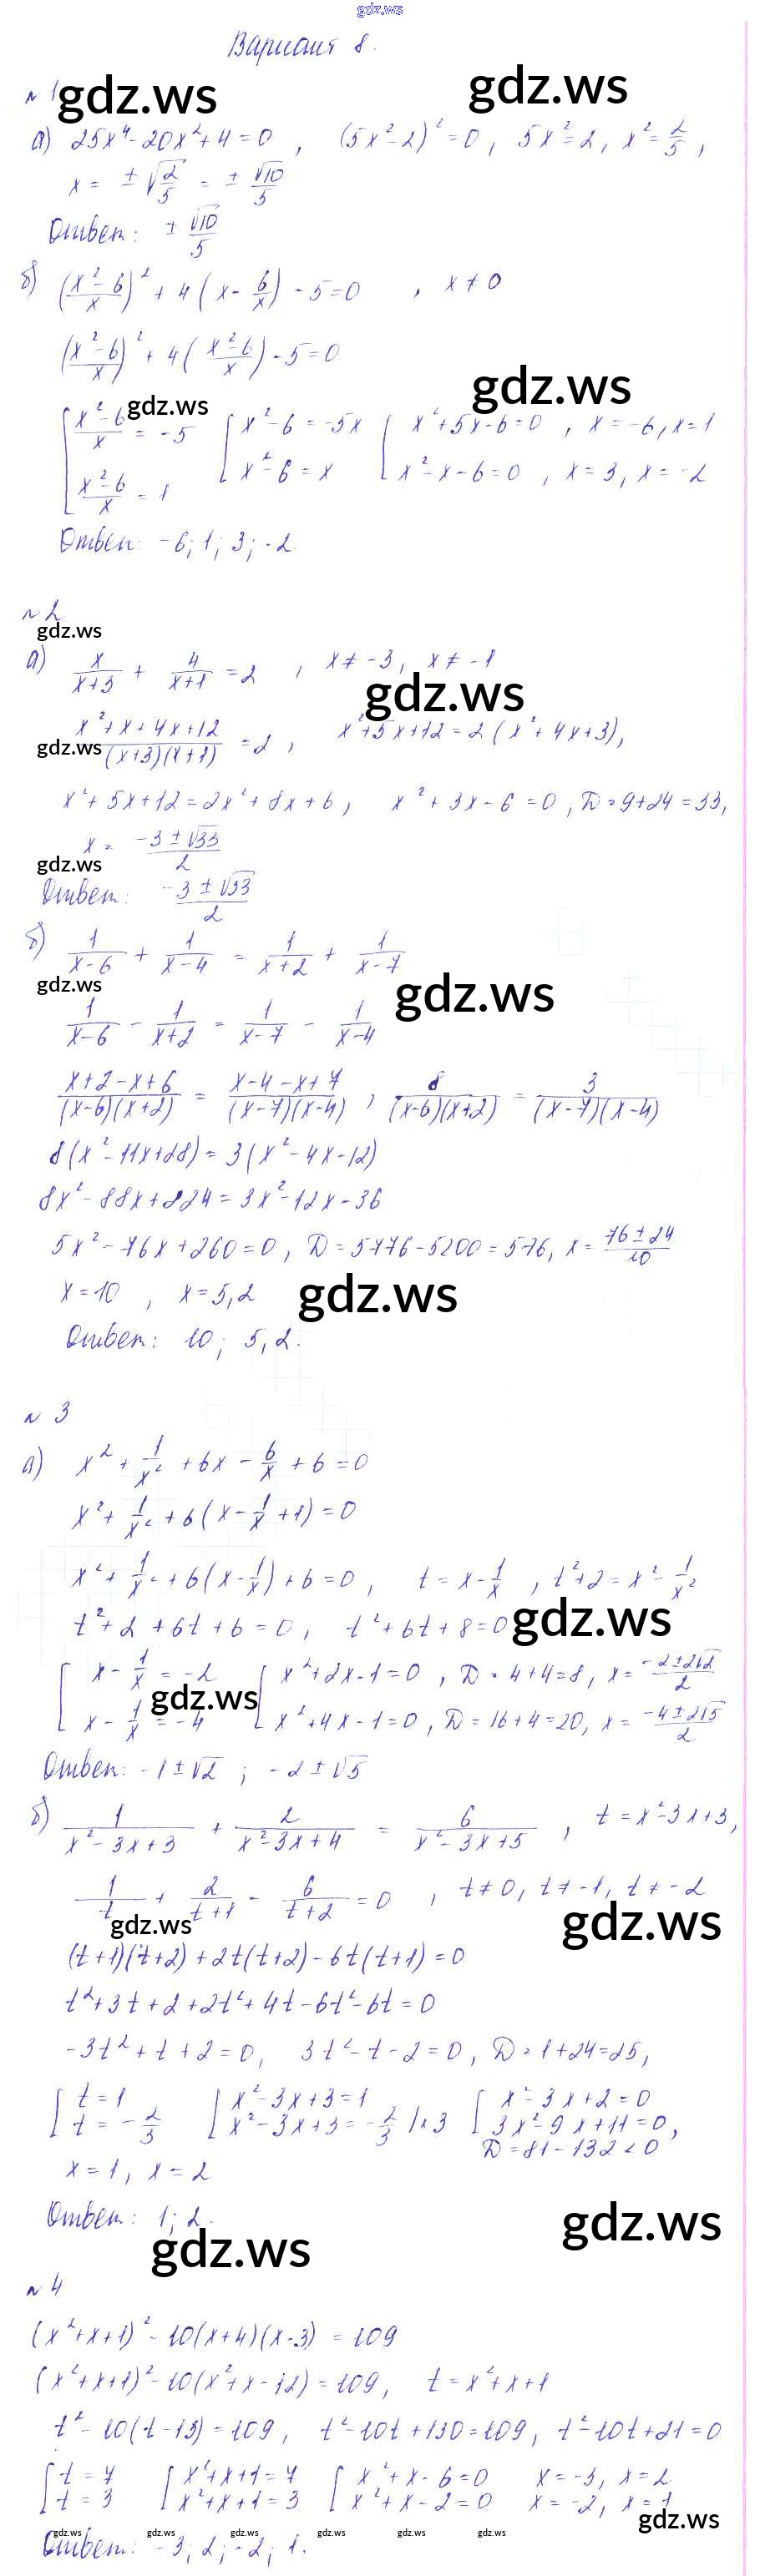 gdz.ws
Вариант 8.
№ 1 gdz.ws gdz.ws
а) 25x⁴-20x²+4=0 , (5x²-2)²=0, 5x²=2, x²=2/5,
x = ±√(2/5) = ± √10/5
Ответ: ± √10/5
б) ((x²-6)/x)² + 4(x - 6/x) - 5=0 , x≠0
((x²-6)/x)² + 4((x²-6)/x) - 5=0
gdz.ws gdz.ws
[ (x²-6)/x = -5 [ x²-6 = -5x [ x²+5x-6=0 , x=-6, x=1
(x²-6)/x = 1 x²-6 = x x²-x-6=0 , x=3, x=-2
Ответ: -6; 1; 3; -2
№ 2
gdz.ws
а) x/(x+3) + 4/(x+1) = 2 , x≠-3, x≠-1
gdz.ws
(x²+x+4x+12)/((x+3)(x+1)) = 2 , x²+5x+12=2(x²+4x+3),
gdz.ws
x²+5x+12=2x²+8x+6 , x²+3x-6=0 , D=9+24=33,
x = (-3±√33)/2
gdz.ws
Ответ: (-3±√33)/2
б) 1/(x-6) + 1/(x-4) = 1/(x+2) + 1/(x-7)
gdz.ws gdz.ws
1/(x-6) - 1/(x+2) = 1/(x-7) - 1/(x-4)
(x+2-x+6)/((x-6)(x+2)) = (x-4-x+7)/((x-7)(x-4)) , 8/((x-6)(x+2)) = 3/((x-7)(x-4))
8(x²-11x+28) = 3(x²-4x-12)
8x²-88x+224 = 3x²-12x-36
5x²-76x+260=0 , D=5776-5200=576, x= (76±24)/10
x=10 , x=5,2 gdz.ws
Ответ: 10; 5,2.
№ 3
а) x² + 1/x² + 6x - 6/x + 6 = 0
x² + 1/x² + 6(x - 1/x + 1) = 0
x² + 1/x² + 6(x - 1/x) + 6 = 0 , t = x - 1/x , t²+2 = x² - 1/x²
t²+2+6t+6=0 , t²+6t+8=0 gdz.ws
[ x - 1/x = -2 [ x²+2x-1=0 , D=4+4=8, x= (-2±2√2)/2
gdz.ws
x - 1/x = -4 x²+4x-1=0 , D=16+4=20, x= (-4±2√5)/2
Ответ: -1±√2 ; -2±√5
б) 1/(x²-3x+3) + 2/(x²-3x+4) = 6/(x²-3x+5) , t=x²-3x+3,
1/t + 2/(t+1) - 6/(t+2) = 0 , t≠0, t≠-1, t≠-2
gdz.ws gdz.ws
(t+1)(t+2)+2t(t+2)-6t(t+1)=0
t²+3t+2+2t²+4t-6t²-6t=0
-3t²+t+2=0, 3t²-t-2=0, D=1+24=25,
[ t=1 [ x²-3x+3=1 [ x²-3x+2=0
t=-2/3 x²-3x+3=-2/3 |×3 3x²-9x+11=0,
D=81-132<0
x=1, x=2
Ответ: 1; 2.
gdz.ws gdz.ws
№ 4
(x²+x+1)²-10(x+4)(x-3)=109
(x²+x+1)²-10(x²+x-12)=109, t=x²+x+1
t²-10(t-13)=109, t²-10t+130=109, t²-10t+21=0
[ t=7 [ x²+x+1=7 [ x²+x-6=0 x=-3, x=2
t=3 x²+x+1=3 x²+x-2=0 x=-2, x=1
gdz.ws
gdz.ws gdz.ws gdz.ws gdz.ws gdz.ws gdz.ws
Ответ: -3; 2; -2; 1.